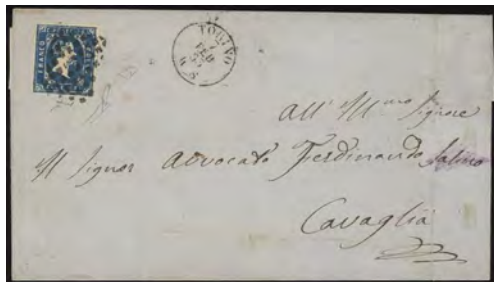 FRANCO
TORINO
7
FEB
All' Ill.mo Signore
Il Signor Avvocato Ferdinando Salino
Cavaglià